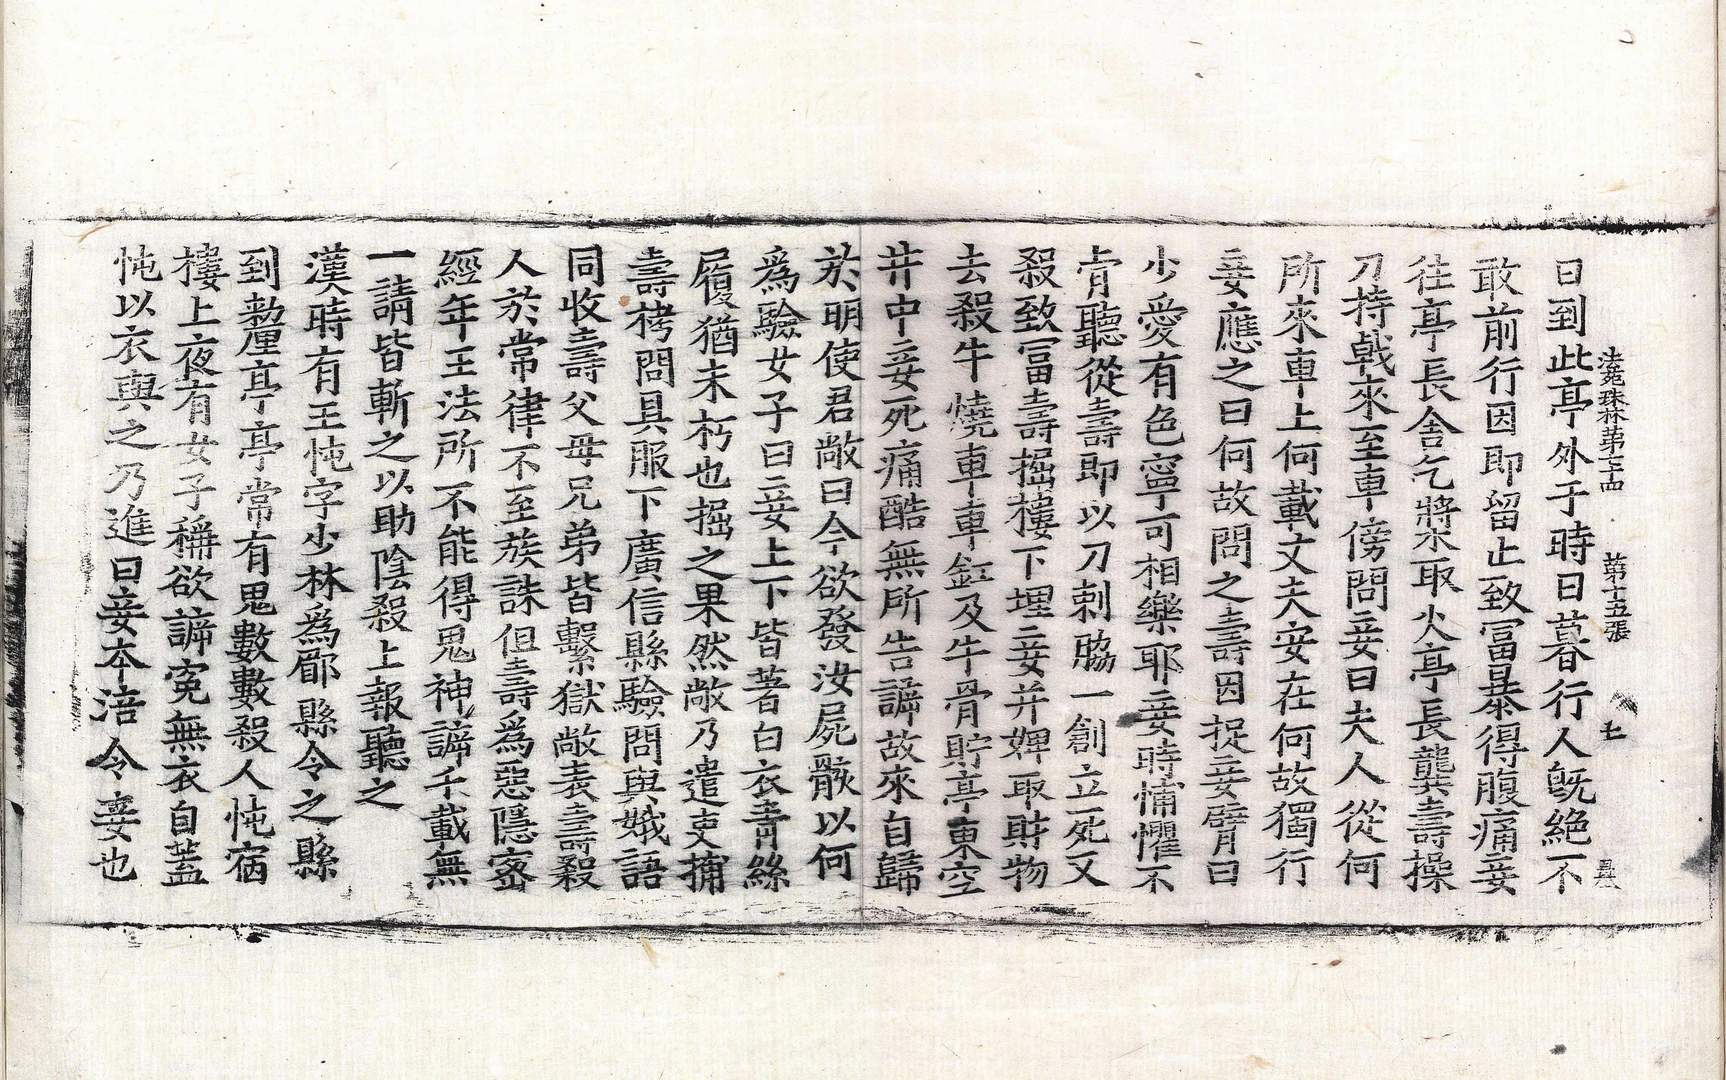 法苑珠林第七十四 第十五張 七
日到此亭外于時日暮行人旣絶不
敢前行因即留止致冨暴得腹痛妾
往亭長舍乞漿取火亭長龔壽操
刀持戟來至車傍問妾曰夫人從何
所來車上何載丈夫安在何故獨行
妾應之曰何故問之壽因捉妾臂曰
少愛有色寧可相樂耶妾時怖懼不
肯聽從壽即以刀刺脇一創立死又
殺致冨壽掘樓下埋妾并婢取財物
去殺牛燒車車釭及牛骨貯亭東空
井中妾死痛酷無所告諦故來自歸
於明使君敞曰今欲發汝屍骸以何
爲驗女子曰妾上下皆著白衣青絲
履猶未朽也掘之果然敞乃遣吏捕
壽栲問具服下廣信縣驗問與娥語
同收壽父毋兄弟皆繫獄敞表壽殺
人於常律不至族誅但壽爲惡隱密
經年王法所不能得鬼神諦千載無
一請皆斬之以助陰殺上報聽之
漢時有王忳字少林爲郿縣令之縣
到勑厘亭亭常有鬼數數殺人忳宿
樓上夜有女子稱欲諦寃無衣自蓋
忳以衣與之乃進曰妾本涪令妾也